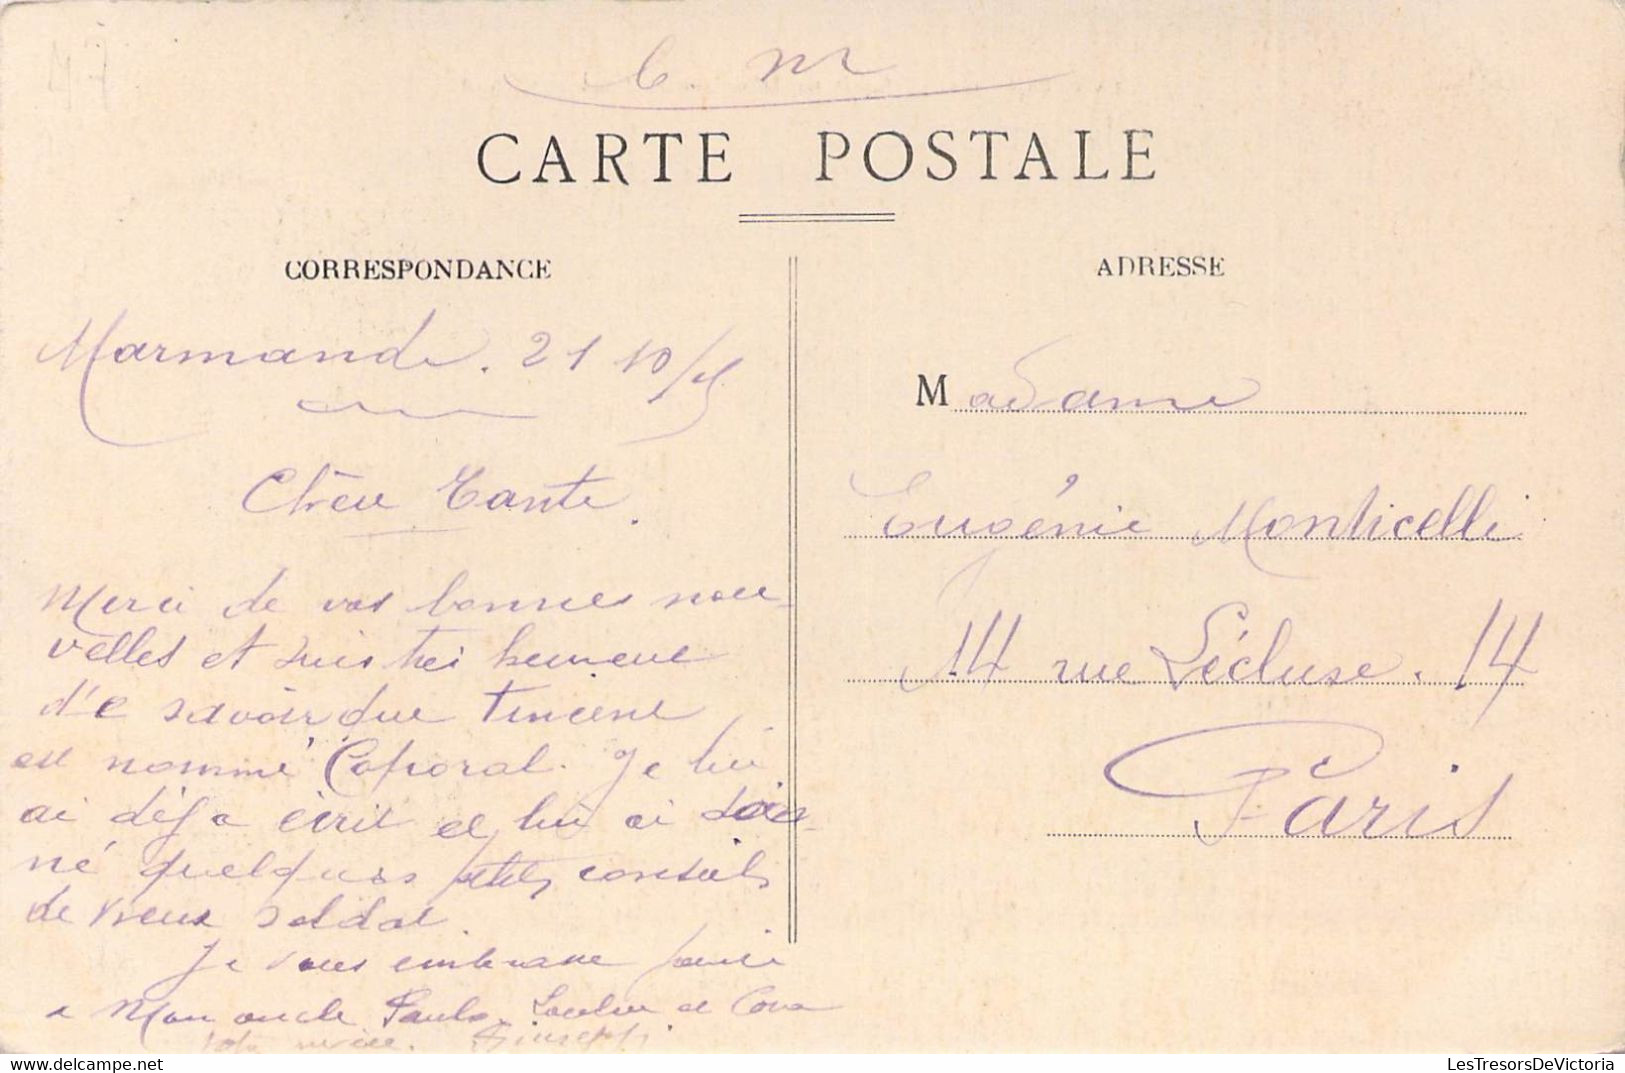 47
C. M
CARTE POSTALE
CORRESPONDANCE
Marmande. 21 10/15
Chère Tante.
Merci de vos bonnes nou-
velles et suis très heureux
d'e savoir que
est nommé Caporal. Je lui
ai déja écrit et lui ai
né quelques petits conseils
de vieux soldat.
Je vous embrasse
a Mon oncle Paulo, et
Giuseppi
ADRESSE
Madame
Eugénie Monticelli
14 rue Lécluse. 14
Paris
LesTresorsDeVictoria